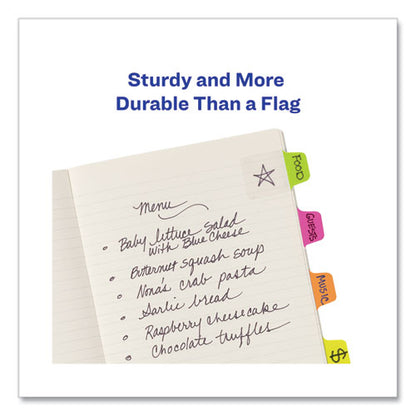 Sturdy and More
Durable Than a Flag
Menu
Baby lettuce salad
with Blue Cheese
Butternut squash soup
Nona's crab pasta
Garlic bread
Raspberry cheesecake
Chocolate truffles
FOOD
GUESTS
MUSIC
$